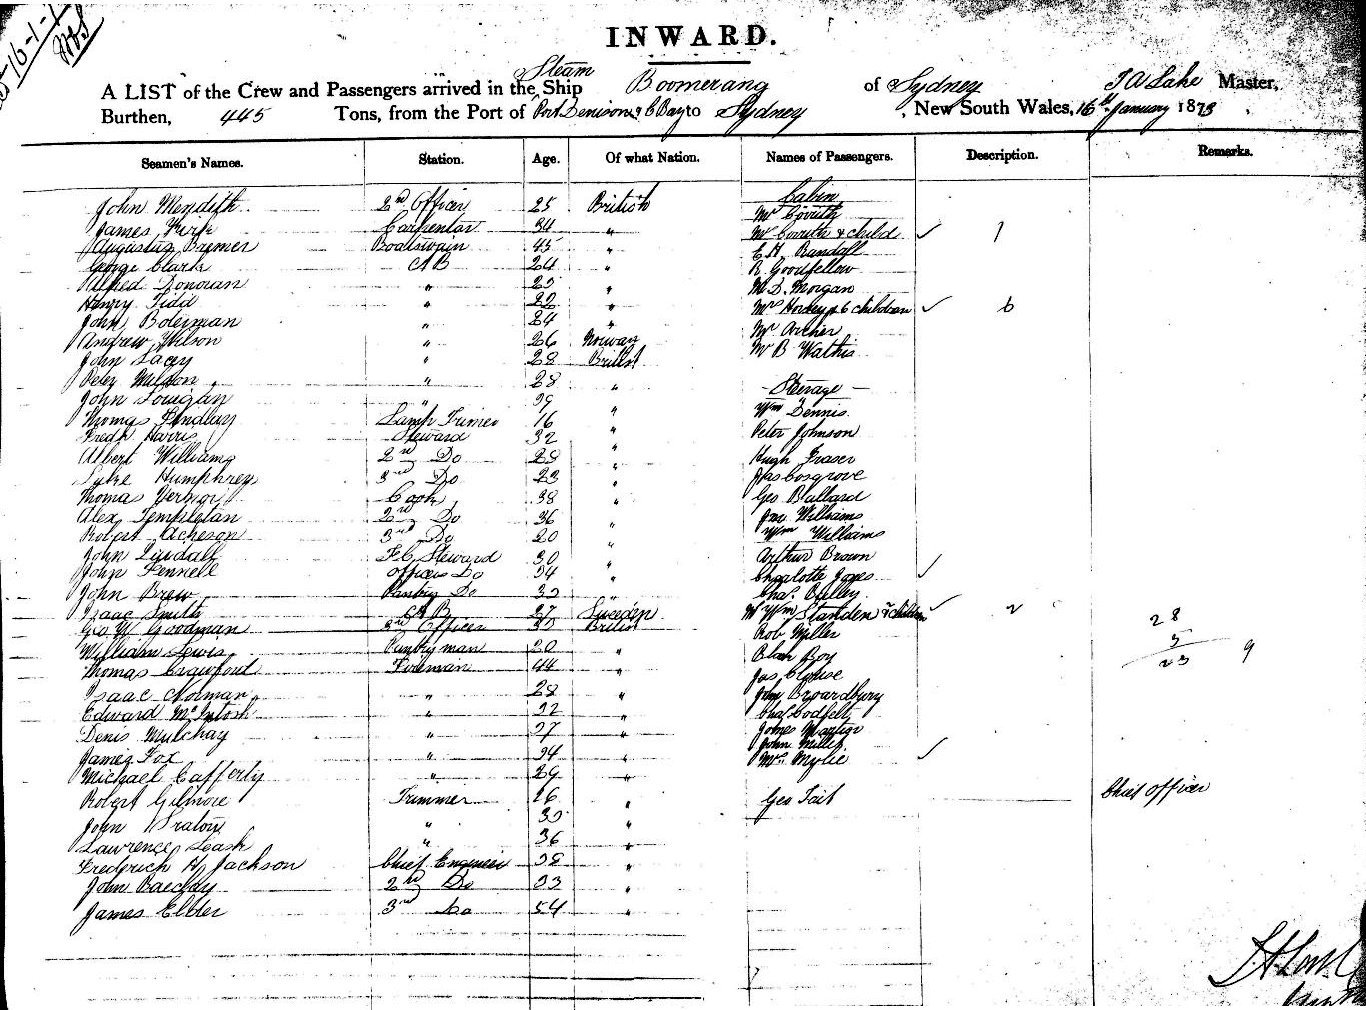 16-1-7
INWARD.
A LIST of the Crew and Passengers arrived in the Steam Ship Boomerang of Sydney J A Lake Master,
Burthen, 445 Tons, from the Port of Port Denison & C Bay to Sydney, New South Wales, 16th January 1873
Seamen's Names. Station. Age. Of what Nation. Names of Passengers. Description. Remarks.
Cabin
John Meridith 2nd Officer 25 British
James Kirk Carpenter 34 "
Augustus Bremer Boatswain 45 "
George Clark AB 24 "
Alfred Donovan " 25 "
Henry Tidd " 22 "
John Boleman " 24 "
Andrew Wilson " 26 Norway
John Lacey " 28 British
Peter " 28 "
John " 29 "
Thomas Findlay Lamp Trimer 16 "
Fredk Harris Steward 32 "
Albert Williams 2nd Do 28 "
Humphreys 3rd Do 23 "
Thomas Cook 38 "
Alex Templetan 2nd Do 36 "
Robert Acheson 3rd Do 20 "
John F.C. Steward 30 "
John Fennell Officers Do 34 "
John Brew Pantry Do 30 "
Isaac Smith AB 27 Sweeden
Geo W Goodman 3rd Officer 30 British
William Lewis Pantryman 20 "
Thomas Crawford Fireman 44 "
Isaac Norman " 28 "
Edward McIntosh " 32 "
Denis Mulchay " 37 "
James Fox " 34 "
Michael Cafferty " 29 "
Robert Gilmore Trimmer 26 "
John " 30 "
Lawrence Leash " 36 "
Frederick H Jackson Chief Engineer 38 "
John 2nd Do 33 "
James Elder 3rd Do 54 "
Mr
Mrs & child 1
E H Randall
R Goodfellow
M D. Morgan
Mrs & 6 children 6
Mr Archer
Mr B
Steerage
Wm Dennis
Peter Johnson
Hugh Fraser
Jas Cosgrove
Geo Ballard
Jno Williams
Wm Williams
Arthur Brown
Charlotte
Chas.
Wm Standen & children 2
Rob Miller
Boy
Jas
John Broardbury
Chas
James
John Miller
Mrs
Geo Tait Chief Officer
28
5
23 9